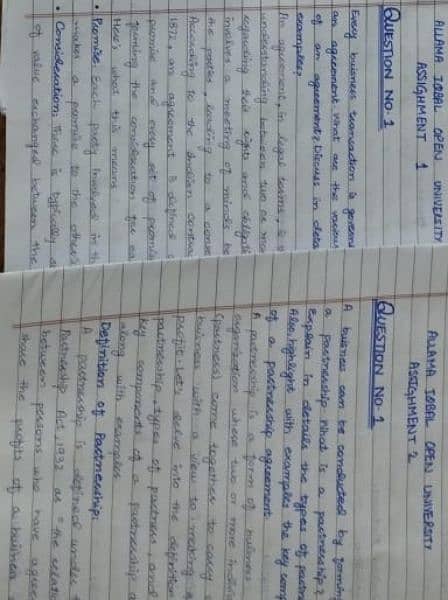 ALLAMA IQBAL OPEN UNIVERSITY
ASSIGNMENT 1
QUESTION NO. 1
Every business transaction is governe
an agreement. What are the various
of an agreement? Discuss in deta
examples?
An agreement, in legal terms, is a
understanding between two or mor
regarding their rights and obligati
involves a meeting of minds be
the parties, leading to a conse
According to the Indian Contrac
1872, an agreement is defined a
promise and every set of promise
forming the consideration for ea
Here's what this means
• Promise: Each party involved in th
makes a promise to the other.
• Consideration: There is typically s
of value exchanged between the
ALLAMA IQBAL OPEN UNIVERSITY
ASSIGNMENT 2
QUESTION NO. 1
A business can be conducted by forming
a partnership. What is a partnership?
Explain in details the types of partne
Also highlight with examples the key comp
of a partnership agreement.
A partnership is a form of business
organization where two or more individ
(partners) come together to carry o
business with a view to making a
profit. Let's delve into the definition
partnership, types of partners, and
key components of a partnership a
along with examples
Definition of Partnership:
A partnership is defined under t
Partnership Act, 1932 as "the relati
between persons who have agree
share the profits of a business